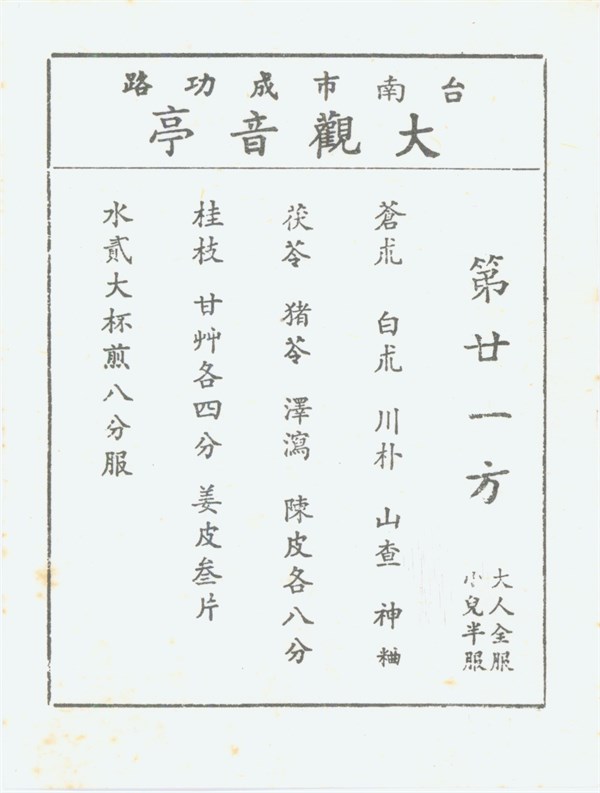 台南市成功路
大觀音亭
第廿一方
大人全服
小兒半服
蒼朮 白朮 川朴 山查 神粬
茯苓 猪苓 澤瀉 陳皮各八分
桂枝 甘艸各四分 姜皮叁片
水貳大杯煎八分服